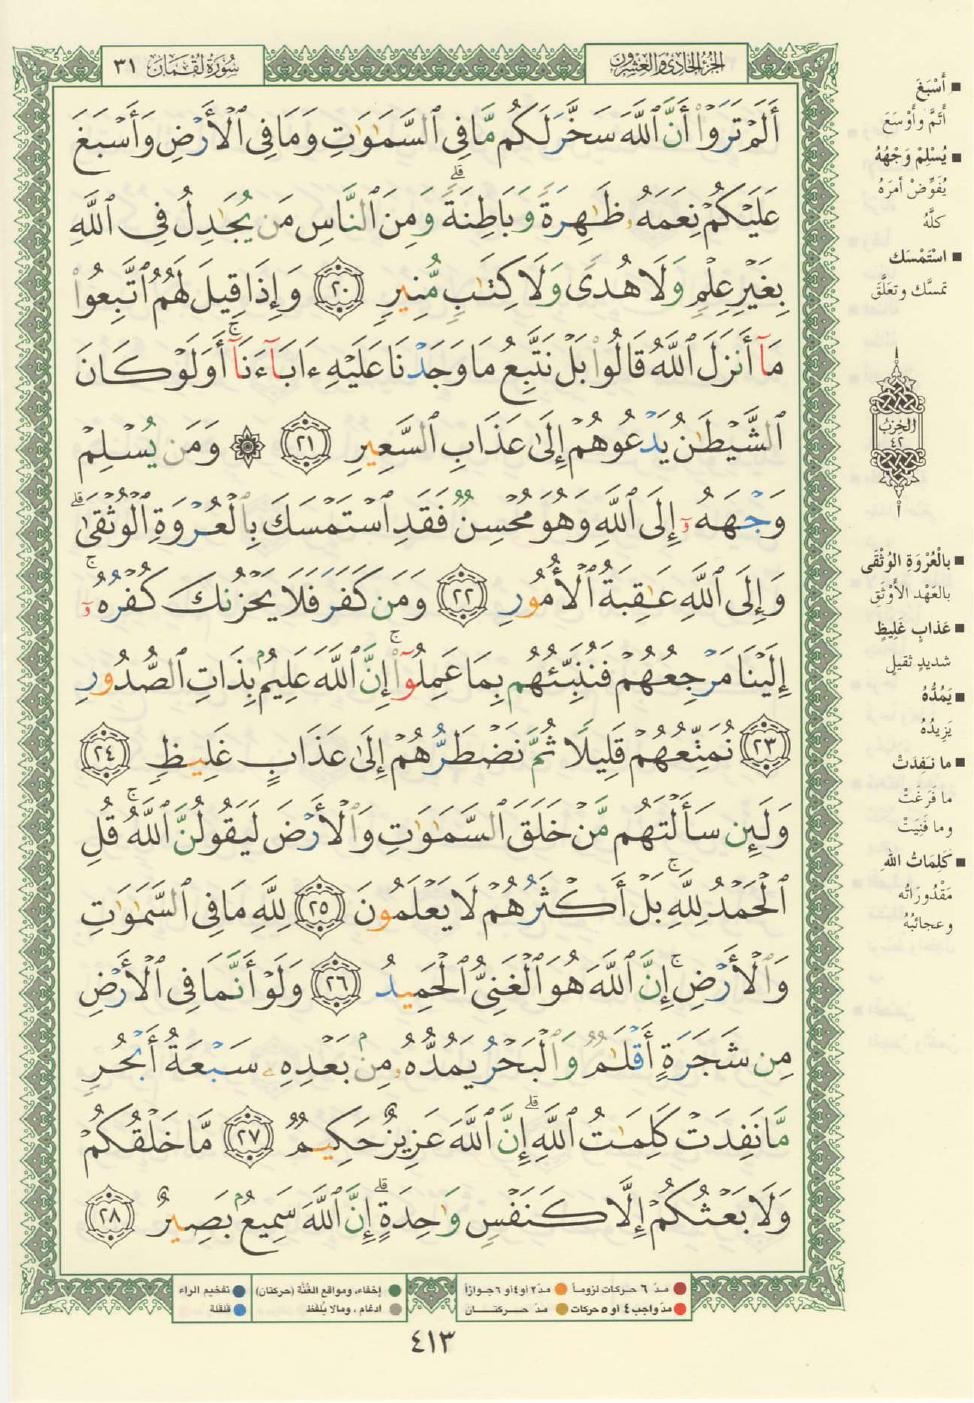 سُورَةُ لُقْمَان ٣١
الجُزْءُ الحَادِي وَالعِشْرُونَ
أَلَمْ تَرَوْا۟ أَنَّ ٱللَّهَ سَخَّرَ لَكُم مَّا فِى ٱلسَّمَٰوَٰتِ وَمَا فِى ٱلْأَرْضِ وَأَسْبَغَ
عَلَيْكُمْ نِعَمَهُۥ ظَٰهِرَةً وَبَاطِنَةً ۗ وَمِنَ ٱلنَّاسِ مَن يُجَٰدِلُ فِى ٱللَّهِ
بِغَيْرِ عِلْمٍ وَلَا هُدًى وَلَا كِتَٰبٍ مُّنِيرٍ ٢٠ وَإِذَا قِيلَ لَهُمُ ٱتَّبِعُوا۟
مَآ أَنزَلَ ٱللَّهُ قَالُوا۟ بَلْ نَتَّبِعُ مَا وَجَدْنَا عَلَيْهِ ءَابَآءَنَآ ۚ أَوَلَوْ كَانَ
ٱلشَّيْطَٰنُ يَدْعُوهُمْ إِلَىٰ عَذَابِ ٱلسَّعِيرِ ٢١ ۞ وَمَن يُسْلِمْ
وَجْهَهُۥٓ إِلَى ٱللَّهِ وَهُوَ مُحْسِنٌ فَقَدِ ٱسْتَمْسَكَ بِٱلْعُرْوَةِ ٱلْوُثْقَىٰ ۗ
وَإِلَى ٱللَّهِ عَٰقِبَةُ ٱلْأُمُورِ ٢٢ وَمَن كَفَرَ فَلَا يَحْزُنكَ كُفْرُهُۥٓ ۚ
إِلَيْنَا مَرْجِعُهُمْ فَنُنَبِّئُهُم بِمَا عَمِلُوٓا۟ ۚ إِنَّ ٱللَّهَ عَلِيمٌۢ بِذَاتِ ٱلصُّدُورِ
٢٣ نُمَتِّعُهُمْ قَلِيلًا ثُمَّ نَضْطَرُّهُمْ إِلَىٰ عَذَابٍ غَلِيظٍ ٢٤
وَلَئِن سَأَلْتَهُم مَّنْ خَلَقَ ٱلسَّمَٰوَٰتِ وَٱلْأَرْضَ لَيَقُولُنَّ ٱللَّهُ ۚ قُلِ
ٱلْحَمْدُ لِلَّهِ ۚ بَلْ أَكْثَرُهُمْ لَا يَعْلَمُونَ ٢٥ لِلَّهِ مَا فِى ٱلسَّمَٰوَٰتِ
وَٱلْأَرْضِ ۚ إِنَّ ٱللَّهَ هُوَ ٱلْغَنِىُّ ٱلْحَمِيدُ ٢٦ وَلَوْ أَنَّمَا فِى ٱلْأَرْضِ
مِن شَجَرَةٍ أَقْلَٰمٌ وَٱلْبَحْرُ يَمُدُّهُۥ مِنۢ بَعْدِهِۦ سَبْعَةُ أَبْحُرٍ
مَّا نَفِدَتْ كَلِمَٰتُ ٱللَّهِ ۗ إِنَّ ٱللَّهَ عَزِيزٌ حَكِيمٌ ٢٧ مَّا خَلْقُكُمْ
وَلَا بَعْثُكُمْ إِلَّا كَنَفْسٍ وَٰحِدَةٍ ۗ إِنَّ ٱللَّهَ سَمِيعٌۢ بَصِيرٌ ٢٨
■ أَسْبَغَ
أَتَمَّ وَأَوْسَعَ
■ يُسْلِمْ وَجْهَهُ
يُفَوِّضْ أمرَهُ
كلَّهُ
■ اسْتَمْسَكَ
تمسَّكَ وتعَلَّقَ
الحِزْبُ
٤٢
■ بِالْعُرْوَةِ الوُثْقَى
بالعَهْدِ الأوْثَقِ
■ عَذابٍ غَلِيظٍ
شديدٍ ثقيلٍ
■ يَمُدُّهُ
يَزِيدُهُ
■ ما نَفِدَتْ
ما فَرَغَتْ
وما فَنِيَتْ
■ كَلِمَاتُ اللهِ
مَقْدُورَاتُه
وعجائبُهُ
مدّ ٦ حركات لزوماً ● مدّ ٢ أو ٤ أو ٦ جوازاً
مدّ واجب ٤ أو ٥ حركات ● مدّ حــركتــان
إخفاء، ومواقع الغُنَّة (حركتان) ● تفخيم الراء
إدغام، وما لا يُلفَظ ● قلقلة
٤١٣